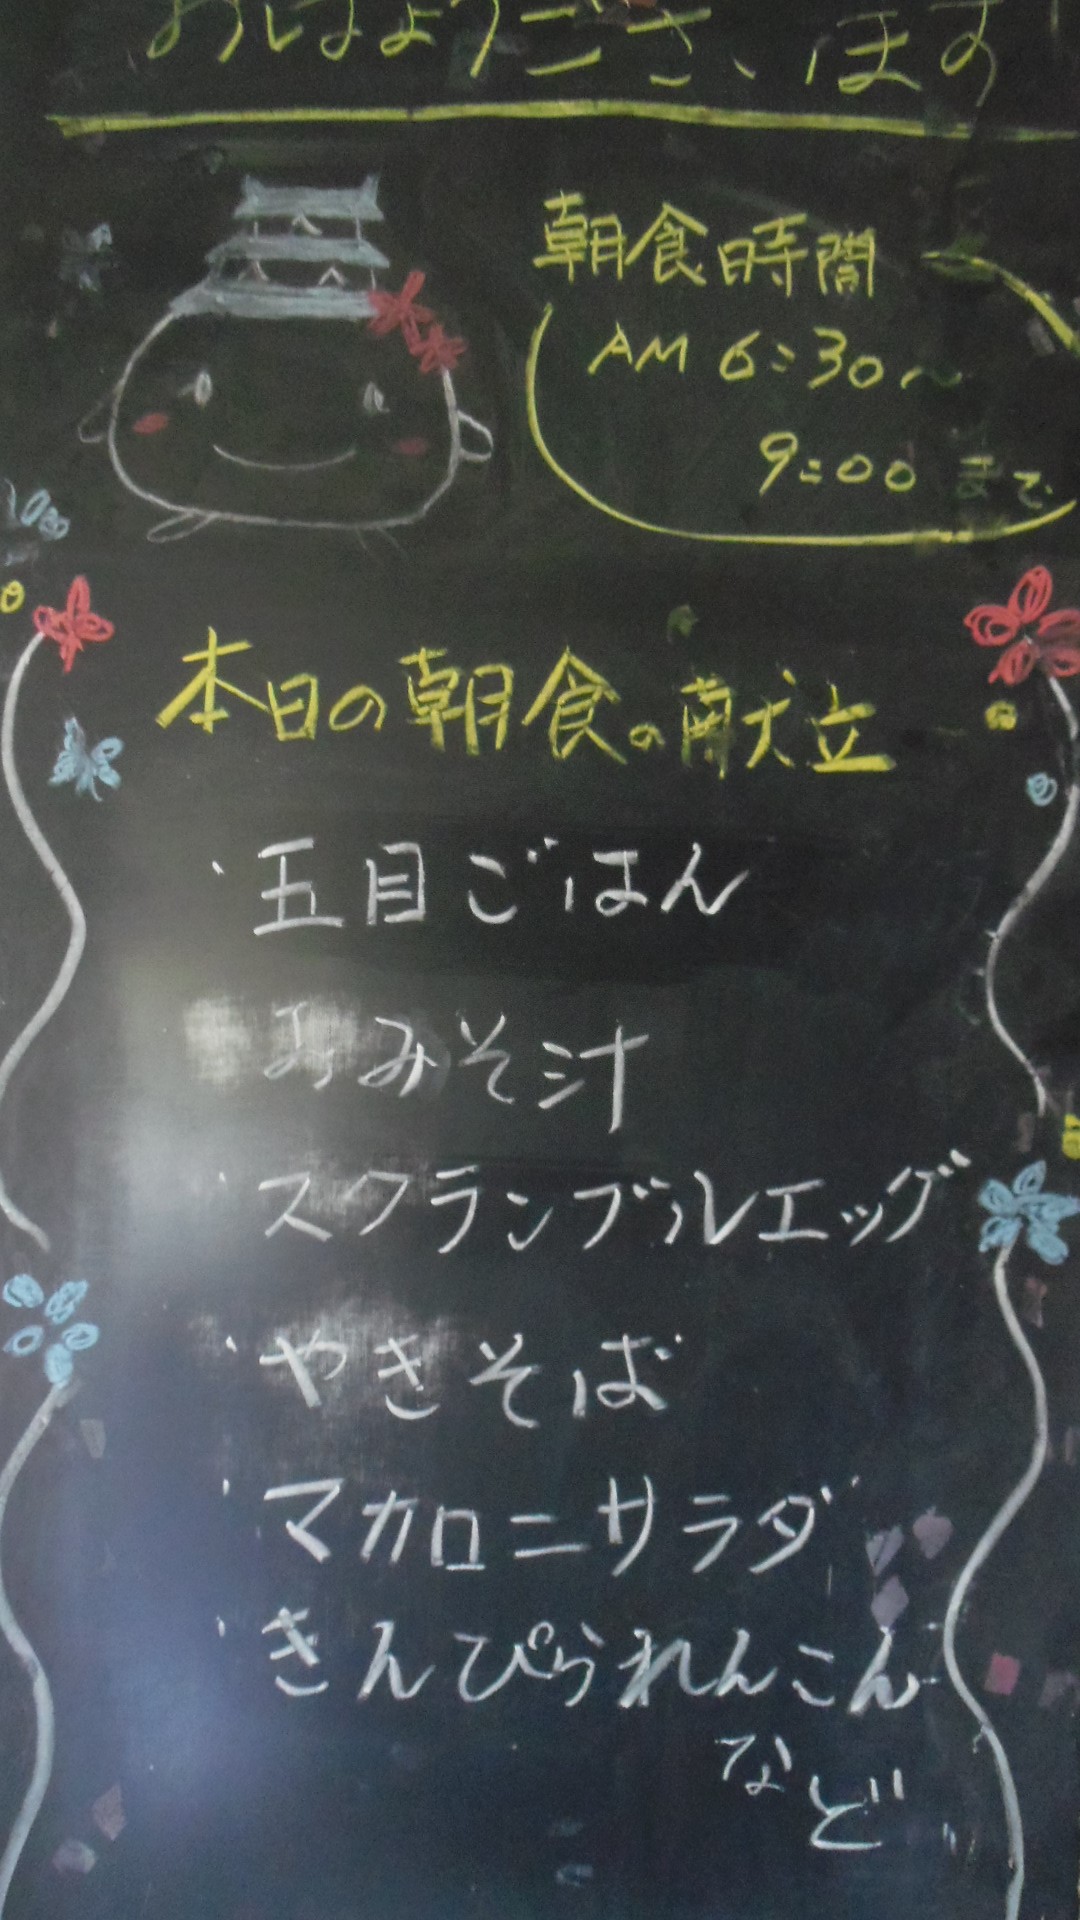 おはようございます
朝食時間
AM 6:30~
9:00 まで
本日の朝食の献立
・五目ごはん
おみそ汁
・スクランブルエッグ
・やきそば
・マカロニサラダ
・きんぴられんこん
など